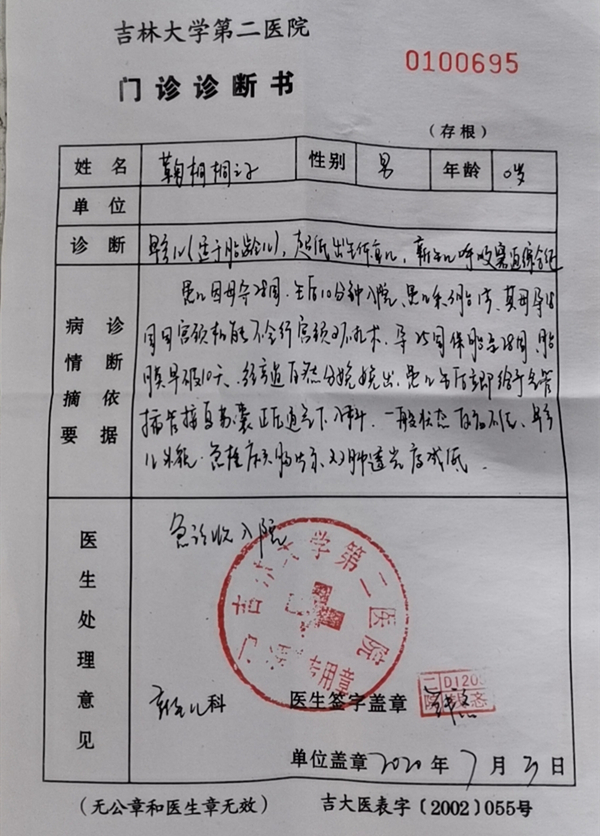 吉林大学第二医院
0100695
门诊诊断书
(存根)
姓名 鞠桐桐之子 性别 男 年龄 0岁
单位
诊断 早产儿(适于胎龄儿),超低出生体重儿,新生儿呼吸窘迫综合征
病情摘要 诊断依据
患儿因母孕28周,生后10分钟入院,患儿系 胎 ,其母孕18
周因宫颈机能不全行宫颈环扎术,孕25周保胎至28周,胎
膜早破10天,经 道自然分娩娩出,患儿生后立即给予气管
插管接复苏囊正压通气下入科,一般状态 反应 ,早产
儿外貌,急检床头 片示双肺透光度减低.
医生处理意见
急诊收入院
吉林大学第二医院
门诊 专用章
新生儿科 医生签字盖章
D120
单位盖章 2020 年 7 月 日
(无公章和医生章无效) 吉大医表字〔2002〕055号